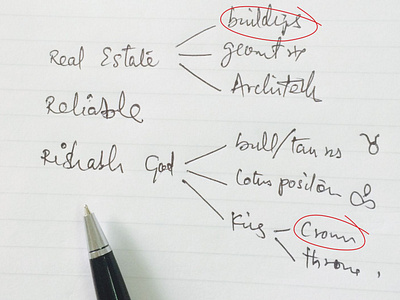 buildings
Real Estate
geometry
Architech
Reliable
Rishabh God
bull/taurus
lotus position
King
Crown
throne,